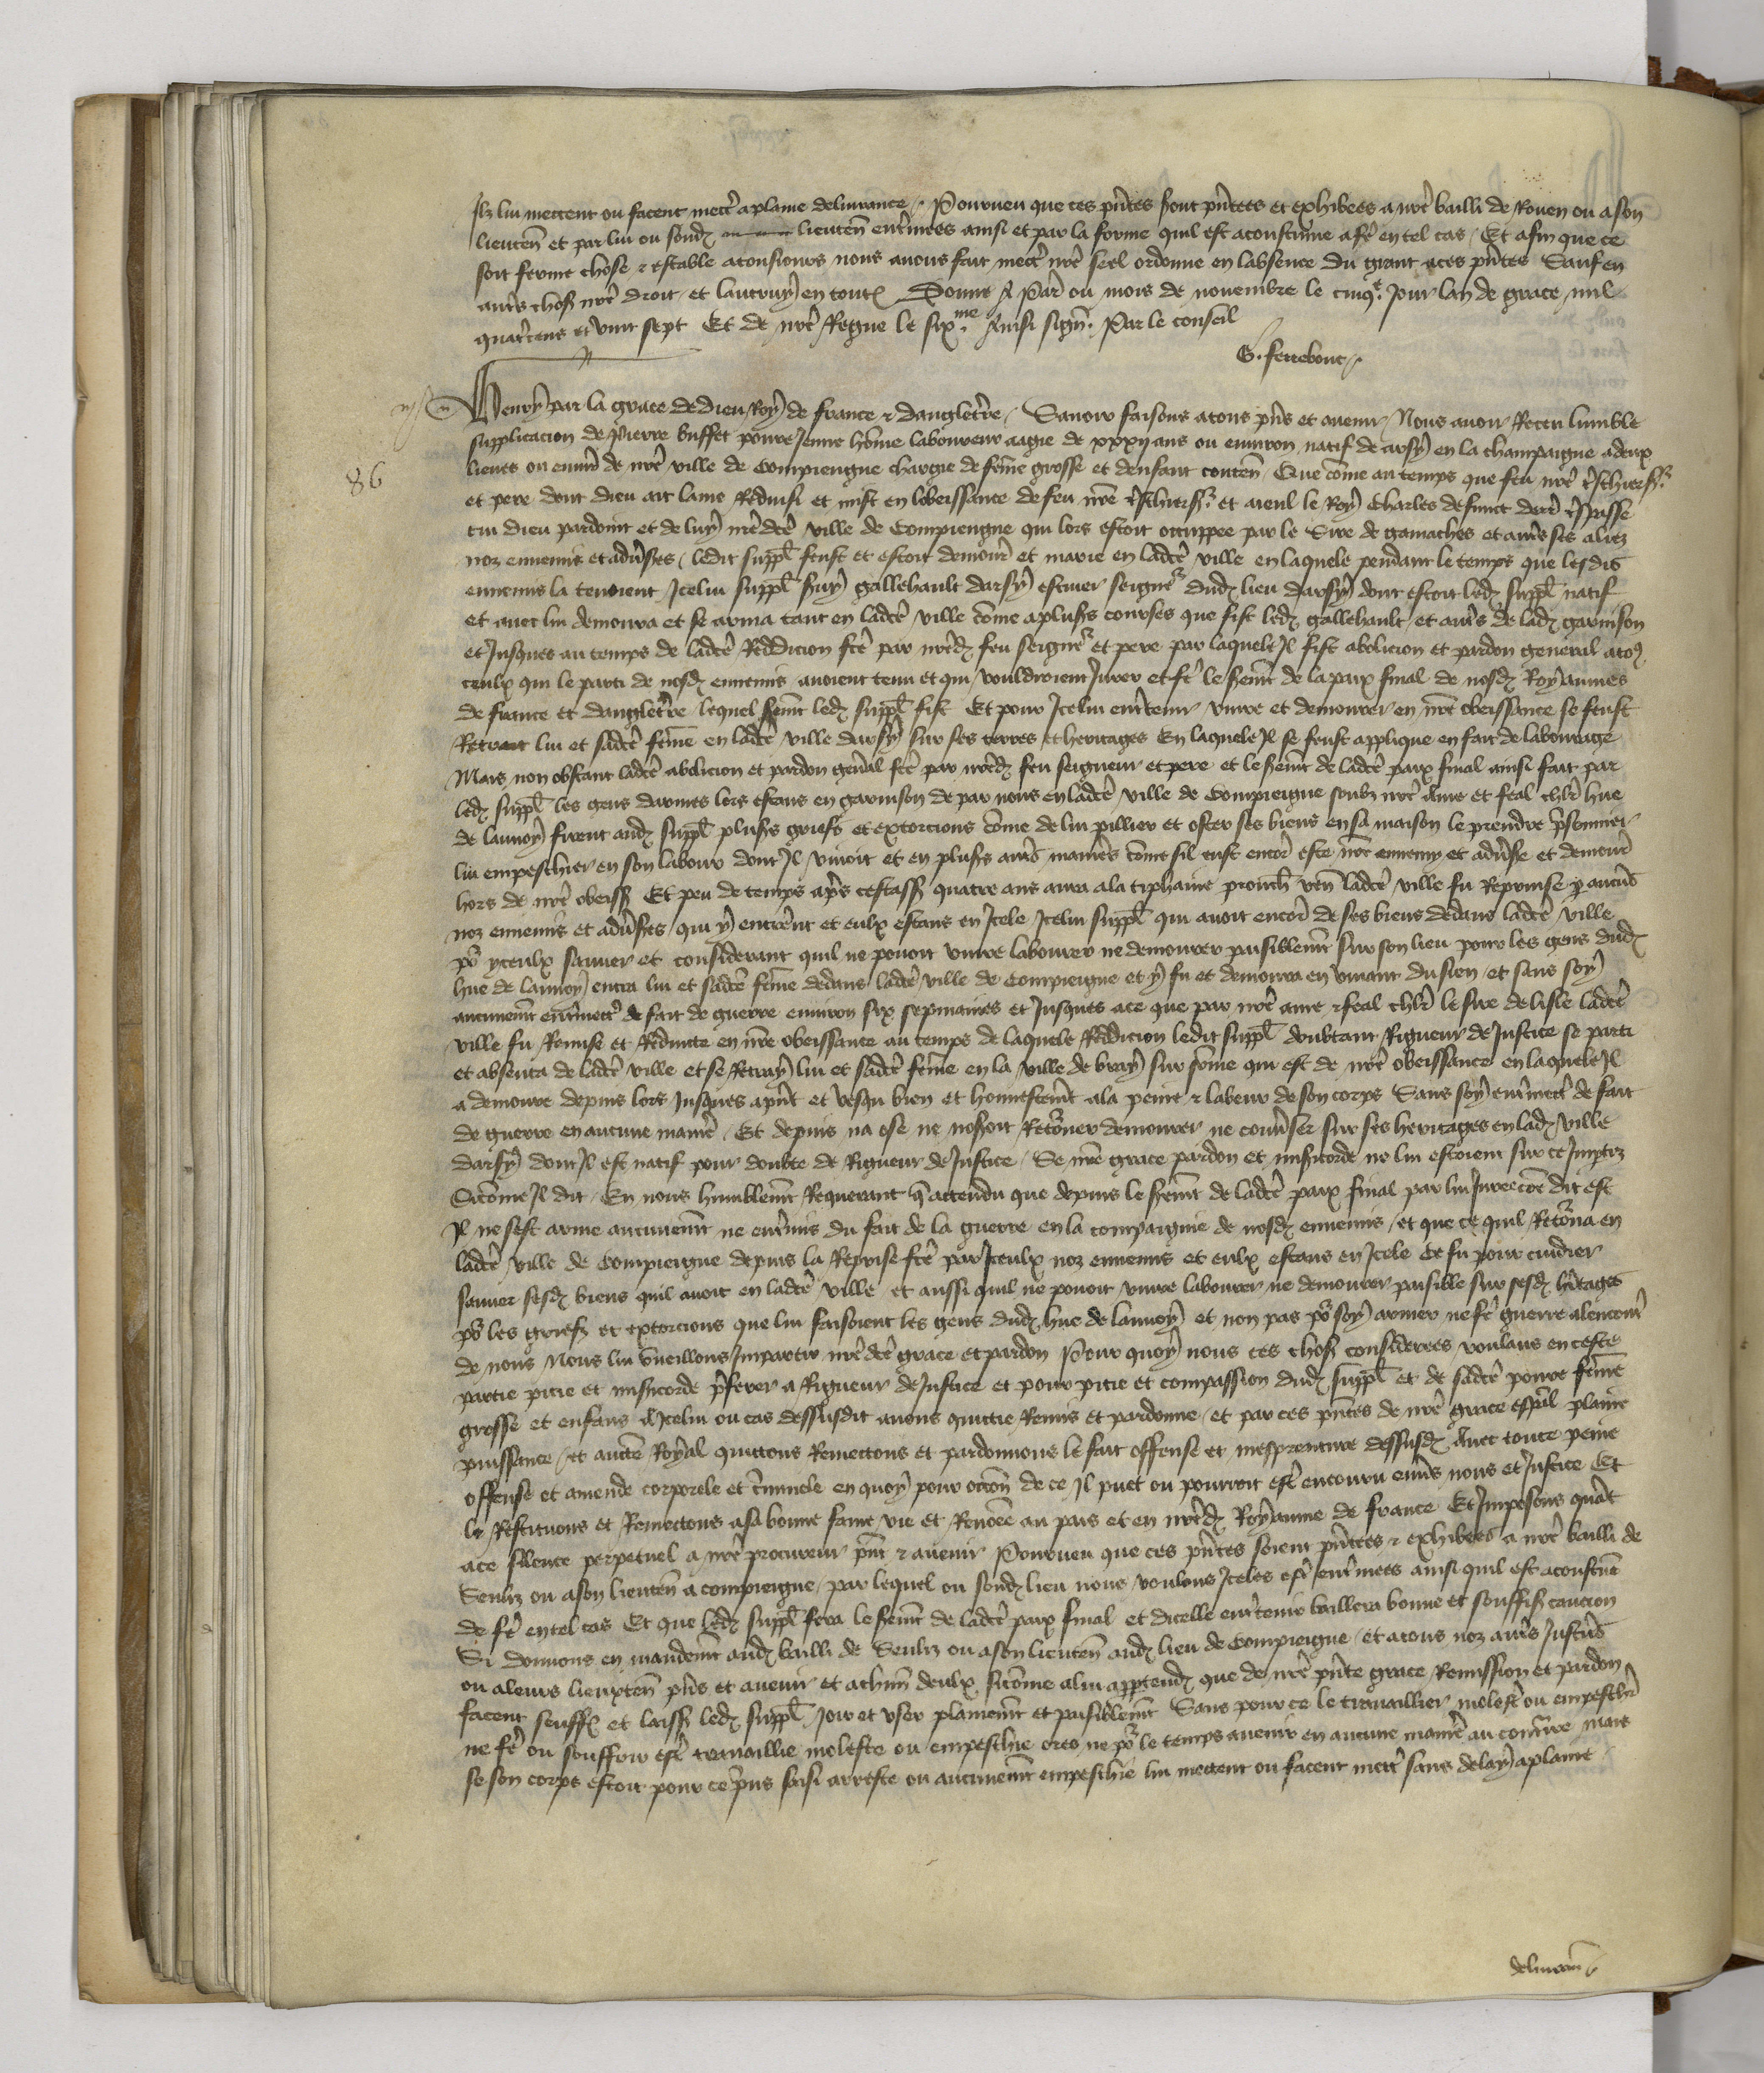 Ilz lui mettent ou facent mettre aplaine delivrance / Pourveu que ces pñtes seront pñtees et exhibees a nrẽ bailli de Rouen ou ason
lieuteñ et par lui ou sond lieuteñ enterinees ainsi et par la forme quil est acoustume afẽ en tel cas / Et afin que ce
soit ferme chose & estable atousiours nous avons fait mettre nrẽ seel ordonne en labsence du grant aces pñtes Sauf en
autrẽs chos nrẽ droit et lautruy en tout Donne a Parã ou mois de novembre le cinqe jour lan de grace mil
quatrecens et vint sept Et de nrẽ Regne le sixme Ainsi signe Par le conseil
G. ferrebouc
Henry par la grace de Dieu Roy de france & dangleterre / Savoir faisons atous pñs et avenir Nous avoir Receu lumble
86
supplicacion de Pierre buffet povre Jeune hõme laboureur aagie de xxxij ans ou environ natif de arsy en la champaigne adeux
lieues ou envirõ de nrẽ ville de Compiengne chargie de fẽme grosse et denfant conteñ Que cõme au temps que feu nrẽ treschier sr
et pere dont dieu ait lame Reduisi et mist en lobeissance de feu nrẽ treschier sr et aieul le Roy Charles defunct derrẽ trespasse
cui dieu pardoint et de luy nrẽdcẽ ville de Compiengne qui lors estoit occuppee par le Sire de gamaches et autrẽs ses aliez
noz ennemis et adversres / ledit suppl feust et estoit demourã et marie en ladcẽ ville en laquele pendant le temps que lesdis
ennemis la tenoient Icelui suppl suy gallehault darsy escuier seignr dud lieu darsy dont estoit led suppl natif
et avec lui demoura et se arma tant en ladcẽ ville cõme a plusrs courses que fist led gallehault et autrẽs de lad garnison
et Jusques au temps de ladcẽ Reddicion fcẽ par nrẽd feu seignr et pere par laquele Il fist abolicion et pardon general atous
ceulx qui le parti de nosd ennemis avoient tenu et qui vouldroient Jurer et fẽ le sermt de la paix final de nosd Royaumes
de france et dangleterre lequel sermt led suppl fist Et pour Icelui entretenir vivre et demourer en nrẽ obeissance se feust
Retrait lui et sadcẽ fẽme en ladcẽ ville darsy sur ses terres et heritages En laquele Il se feust applique en fait de labourage
Mais non obstant ladcẽ abolicion et pardon genẽal fcẽ par nrẽd feu seigneur et pere et le sermt de ladcẽ paix final ainsi fait par
led suppl les gens darmes lors estans en garnison de par nous en ladcẽ ville de Compiengne soubz nrẽ Ame et feal chlr hue
de lannoy firent aud suppl plusrs griefs et extorcions cõme de lui pillier et oster ses biens en sa maison le prendre prisonnier
lui empeschier en son labour dont Il vivoit et en plusrs autrẽs manierẽs cõme sil eust encorẽ este nrẽ ennemy et adversre et demourã
hors de nrẽ obeiss Et peu de temps aprẽs cestass quatre ans aura ala tiphaine prouch veñ ladcẽ ville fu Reprinse p aucũs
noz ennemis et adversres qui y entrẽrent et eulx estans en Icele Icelui suppl qui avoit encorẽ de ses biens dedans ladcẽ ville
pr yceulx sauver et considerant quil ne povoit vivre labourer ne demourer paisiblement sur son lieu pour les gens dud
hue de lannoy entra lui et sadcẽ fẽme dedans ladcẽ ville de Compiengne et y fu et demoura en vivant du sien et sans soy
aucunement entremettre de fait de guerre environ six sepmaines et Jusques ace que par nrẽ ame & feal chlr le sire de lisle ladcẽ
ville fu Remise et Reduicte en nrẽ obeissance au temps de laquele Reddicion ledit suppl doubtant Rigueur de Justice se parti
et absenta de ladcẽ ville et se Retray lui et sadcẽ fẽme en la ville de bray sur sõme qui est de nrẽ obeissance en laquele Il
a demoure depuis lors Jusques apñt et vesqu bien et honnestemt ala peine & labeur de son corps Sans soy entremettre de fait
de guerre en aucune manierẽ Et depuis na ose ne noseroit Retõner demourer ne converser sur ses heritages en lad ville
darsy dont Il est natif pour doubte de Rigueur de Justice / Se nrẽ grace pardon et misericorde ne lui estoient sur ce Impartiz
Sicõme Il dit En nous humblemt Requerant q attendu que depuis le sermt de ladcẽ paix final par lui Jure cõe dit est
Il ne sest arme aucunemt ne entremis du fait de la guerre en la compaignie de nosd ennemis / et que ce quil Retõna en
ladcẽ ville de Compiengne depuis la Reprise fcẽ par Iceulx noz ennemis et eulx estans en Icele Ce fu pour cuidier
sauver sesd biens quil avoit en ladcẽ ville et aussi quil ne povoit vivre labourer ne demourer paisible sur sesd hẽitages
pr les griefz et extorcions que lui faisoient les gens dud hue de lannoy et non pas pr soy armer ne fẽ guerre alencontrẽ
de nous Nous lui vueillons Impartir nrẽdcẽ grace et pardon Pour quoy nous ces chos considerees voulans en ceste
partie pitie et misericorde preferer a Rigueur de Justice et pour pitie et compassion dud suppl et de sadcẽ povre fẽme
grosse et enfans A Icelui ou cas dessusdit avons quictie Remis et pardonne / et par ces pñtes de nrẽ grace espãl plaine
puissance et auctẽ Royal quictons Remettons et pardonnons le fait offense et mesprenture dessusd Avec toute peine
offense et amende corporele et criminele en quoy pour occoñ de ce Il puet ou pourroit estrẽ encouru envers nous et Justice Et
le Restituons et Remettons asa bonne fame vie et Renõee au pais et en nrẽd Royaume de france Et Imposons quãt
ace silence perpetuel a nrẽ procureur pñt & avenir Pourveu que ces pñtes soient pñtees & exhibees a nrẽ bailli de
Senliz ou ason lieuteñ a compiengne / par lequel ou sond lieu nous voulons Iceles estrẽ enterinees ainsi quil est acoustume
de fẽ en tel cas Et que led suppl fera le sermt de ladcẽ paix final et dicelle entretenir baillera bonne et souffis caucion
Si donnons en mandemt aud bailli de Senliz ou ason lieuteñ aud lieu de Compiengne / et atous noz autrẽs Justiciers
ou aleurs lieuxteñ pñs et avenir et achũn deulx sicõme alui appartendra que de nrẽ pñte grace Remission et pardon
facent seuffr et laiss led suppl Joir et user plainemt et paisiblemt Sans pour ce le travaillier molester ou empeschr
ne fẽ ou souffrir estrẽ travaillie moleste ou empeschie ores ne pr le temps avenir en aucune manierẽ au contrẽre mais
se son corps estoit pour ce prins saisi arreste ou aucunemt empeschie lui mettent ou facent mettre sans delay aplaine
delivrance